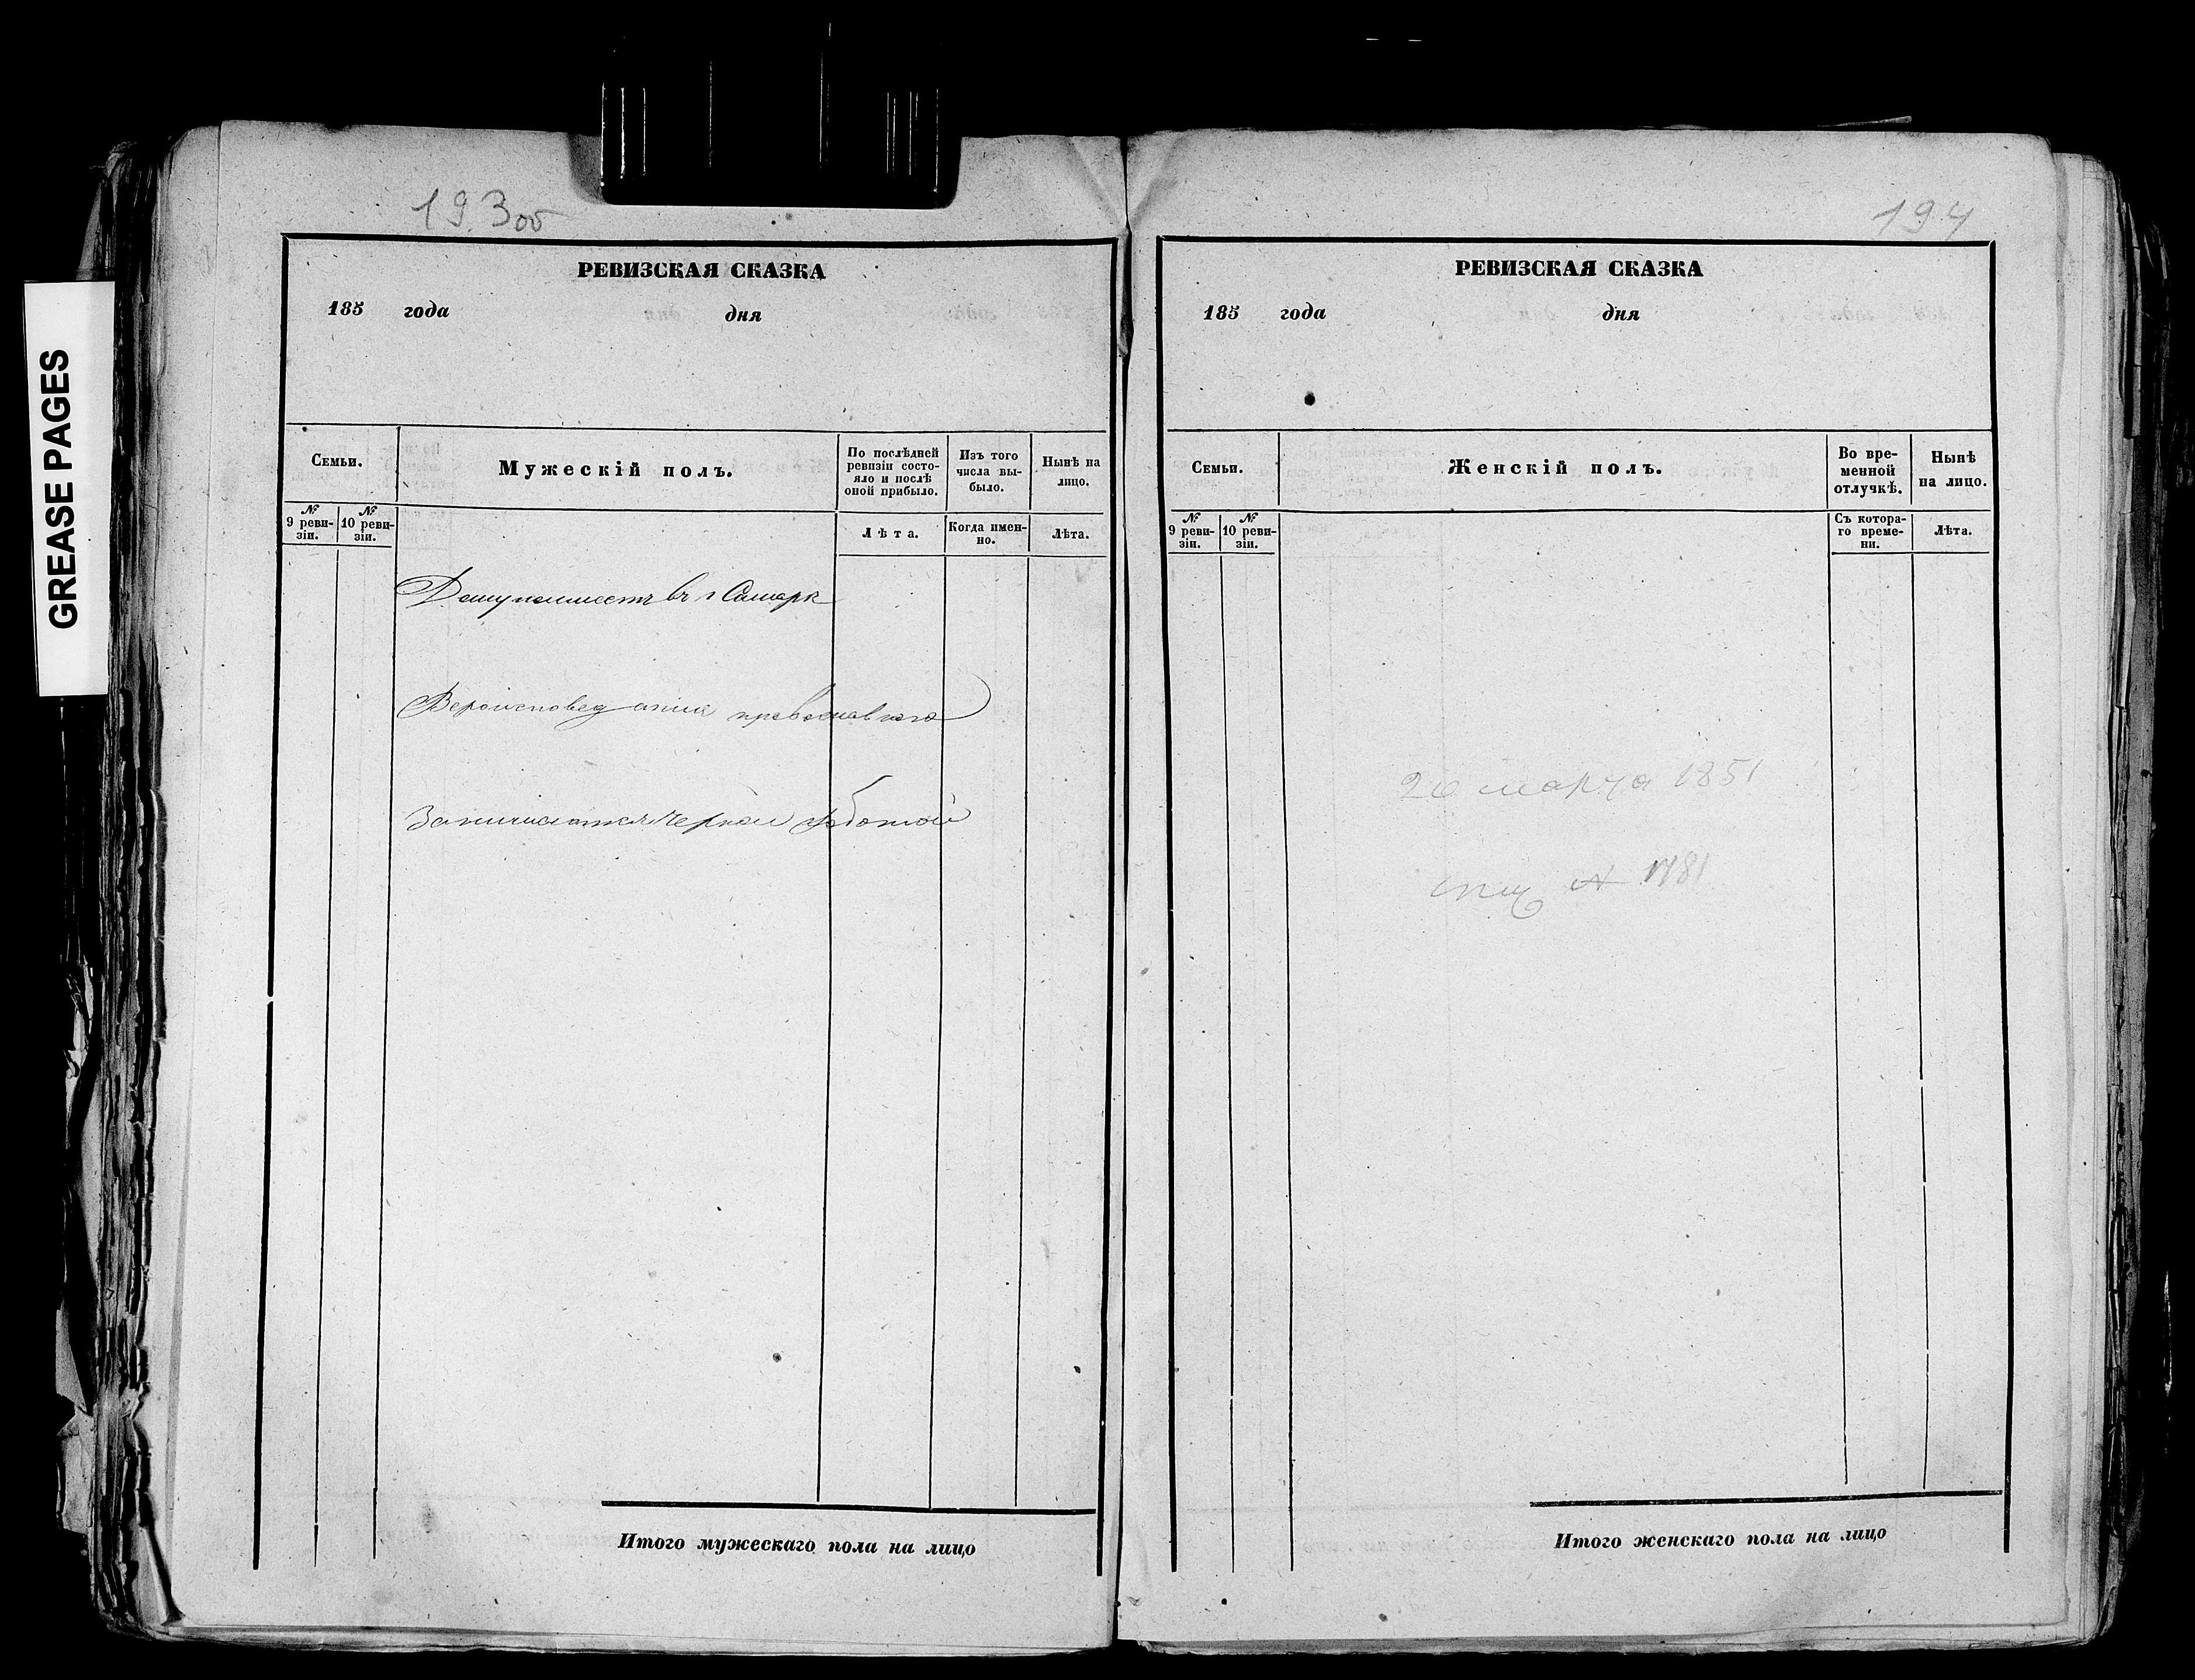 GREASE PAGES
193об
РЕВИЗСКАЯ СКАЗКА
185 года дня
Семьи.
Мужескій полъ.
По послѣдней ревизіи состо-
яло и послѣ
оной прибыло.
Изъ того
числа вы-
было.
Нынѣ на
лицо.
№
9 реви-
зіи.
№
10 реви-
зіи.
Лѣта.
Когда имен-
но.
Лѣта.
Дому неимеетъ въ г Самарѣ
Вероисповеданиа православнаго
Занимается Черной работой
Итого мужескаго пола на лицо
194
РЕВИЗСКАЯ СКАЗКА
185 года дня
Семьи.
Женскій полъ.
Во вре-
менной
отлучкѣ.
Нынѣ
на лицо.
№
9 реви-
зіи.
№
10 реви-
зіи.
Съ котора-
го време-
ни.
Лѣта.
марта 1851
№ 1781
Итого женскаго пола на лицо